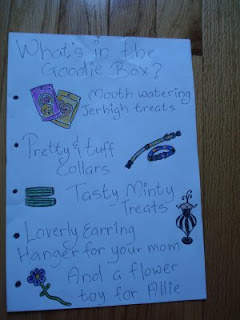 What's in the
Goodie Box?
Mouth watering
Jerhigh treats
Pretty & tuff
Collars
Tasty Minty
Treats
Loverly Earring
Hanger for your mom
And a flower
toy for Allie